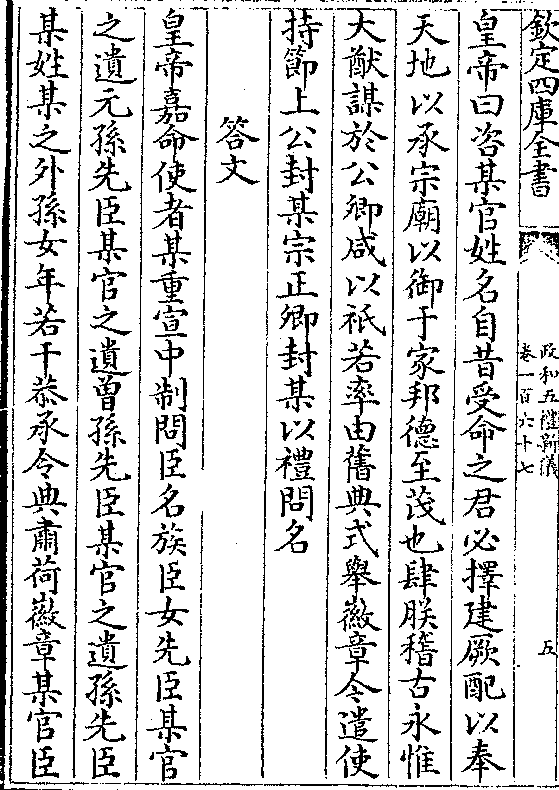 欽定四庫全書
政和五禮新儀
卷一百六十七
五
皇帝曰咨某官姓名自昔受命之君必擇建厥配以奉
天地以承宗廟以御于家邦德至茂也肆朕稽古永惟
大猷謀於公卿咸以祇若率由舊典式舉徽章令遣使
持節上公封某宗正卿封某以禮問名
答文
皇帝嘉命使者某重宣中制問臣名族臣女先臣某官
之遺元孫先臣某官之遺曾孫先臣某官之遺孫先臣
某姓某之外孫女年若干恭承令典肅荷徽章某官臣